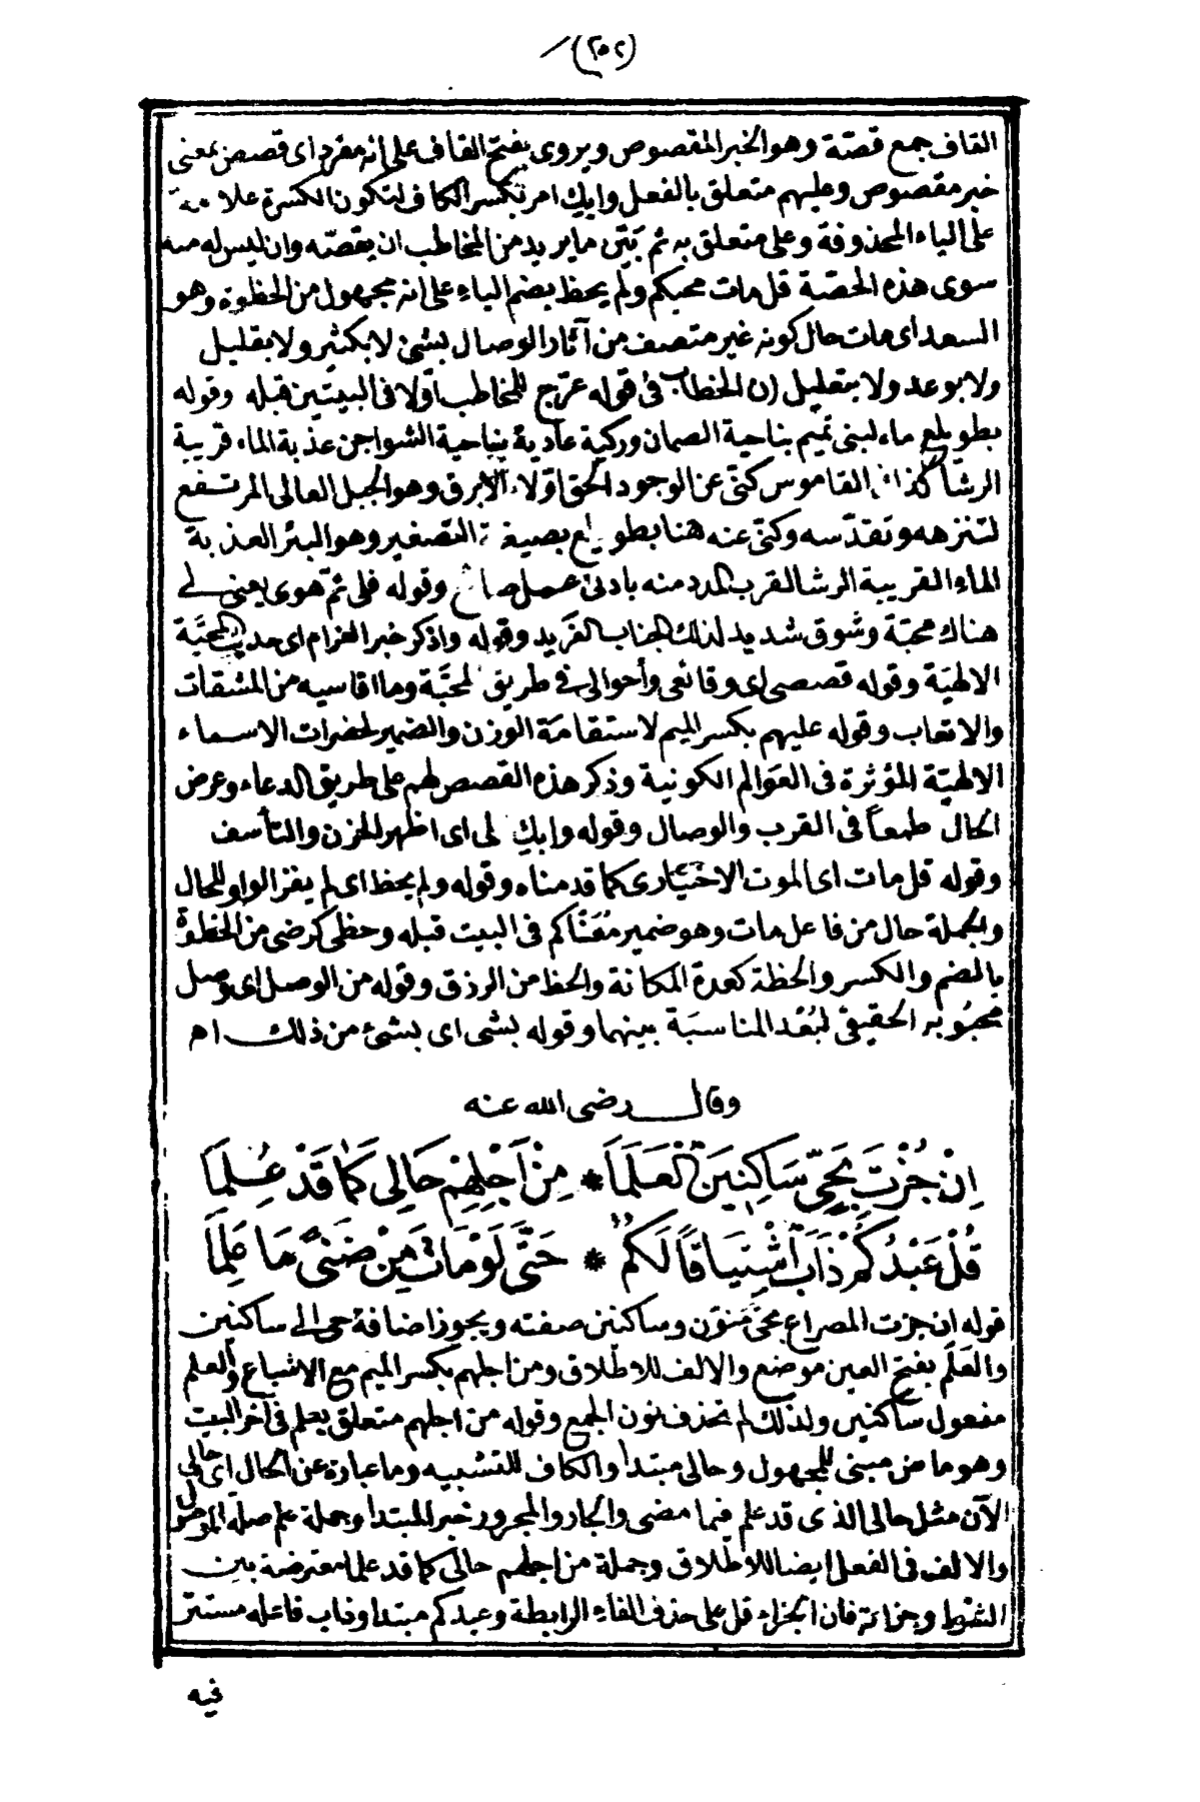 (٢٠٢)
القاف جمع قصّة وهو الخبر المقصوص ويروى بفتح القاف على انه مفرد اى قصص بمعنى
خبر مقصوص وعليهم متعلق بالفعل وابك امر بكسر الكاف لتكون الكسرة علامة
على الياء المحذوفة وعلى متعلق به ثم بيّن ما يريد من المخاطب ان يقصّه وان ليس له منه
سوى هذه الحصّة قل مات محبكم ولم يحظ بضم الياء على انه مجهول من الحظوة وهو
السعد اى مات حال كونه غير متصف من آثار الوصال بشئ لا بكثير ولا بقليل
ولا بوعد ولا بتعليل (ن) الخطاب فى قوله عرّج للمخاطب اوّلا فى البيتين قبله وقوله
بطويلع ماء لبنى تميم بناحية الصمان وركية عادية بناحية الشواجن عذبة الماء قريبة
الرشا كذا فى القاموس كنّى عن الوجود الحق اوّلا بالابرق وهو الجبل العالى المرتفع
لتنزهه وتقدّسه وكنّى عنه هنا بطويلع بصيغة التصغير وهو البئر العذبة
الماء القريبة الرشا لقرب المدد منه بادنى عمل صالح وقوله فلى ثمّ هوى يعنى لى
هناك محبّة وشوق شديد لذلك الجناب الفريد وقوله واذكر خبر الغرام اى حديث المحبّة
الالهيّة وقوله قصصى اى وقائعى وأحوالى فى طريق المحبّة وما اقاسيه من المشقات
والاتعاب وقوله عليهم بكسر الميم لاستقامة الوزن والضمير لحضرات الاسماء
الالهيّة المؤثرة فى العوالم الكونية وذكر هذه القصص لهم على طريق الدعاء وعرض
الحال طمعاً فى القرب والوصال وقوله وابك لى اى اظهر الحزن والتأسف
وقوله قل مات اى الموت الاختيارى كما قدمناه وقوله ولم يحظ اى لم يفز الواو للحال
والجملة حال من فاعل مات وهو ضمير مُعَنّاكم فى البيت قبله وحظى كرضى من الحظوة
بالضم والكسر والحظة كعدة المكانة والحظ من الرزق وقوله من الوصل اى وصل
محبُوبه الحقيقى لبُعْد المناسبَة بينهما وقوله بشى اى بشئ من ذلك اه
وقال رضى الله عنه
اِنْ جُزْتَ بِحَيٍّ سَاكِنِينَ العَلَمَا * مِنْ اَجْلِهِمْ حَالِى كَمَا قَدْ عُلِمَا
قُلْ عَبْدُكُمْ ذَابَ اشْتِيَاقًا لَكُمُ * حَتَّى لَوْ مَاتَ مِنْ ضَنًى مَا عَلِمَا
قوله ان جزت المصراع بحىّ منوّن وساكنين صفته ويجوز اضافة حى الى ساكنين
والعَلَم بفتح العين موضع والالف للاطلاق ومن اجلهم بكسر الميم مع الاشباع والعلم
مفعول ساكنين ولذلك لم تحذف نون الجمع وقوله من اجلهم متعلق بعلم فى آخر البيت
وهو ماض مبنى للمجهول وحالى مبتدأ والكاف للتشبيه وما عبارة عن الحال اى حالى
الآن مثل حالى الذى قد علم فيما مضى والجار والمجرور خبر المبتدا وجملة علم صلة الموصول
والالف فى الفعل ايضا للاطلاق وجملة من اجلهم حالى كما قد علما معترضة بين
الشرط وجزائه فان الجزاء قل على حذف الفاء الرابطة وعبدكم مبتدا وذاب فاعله مستتر
فيه